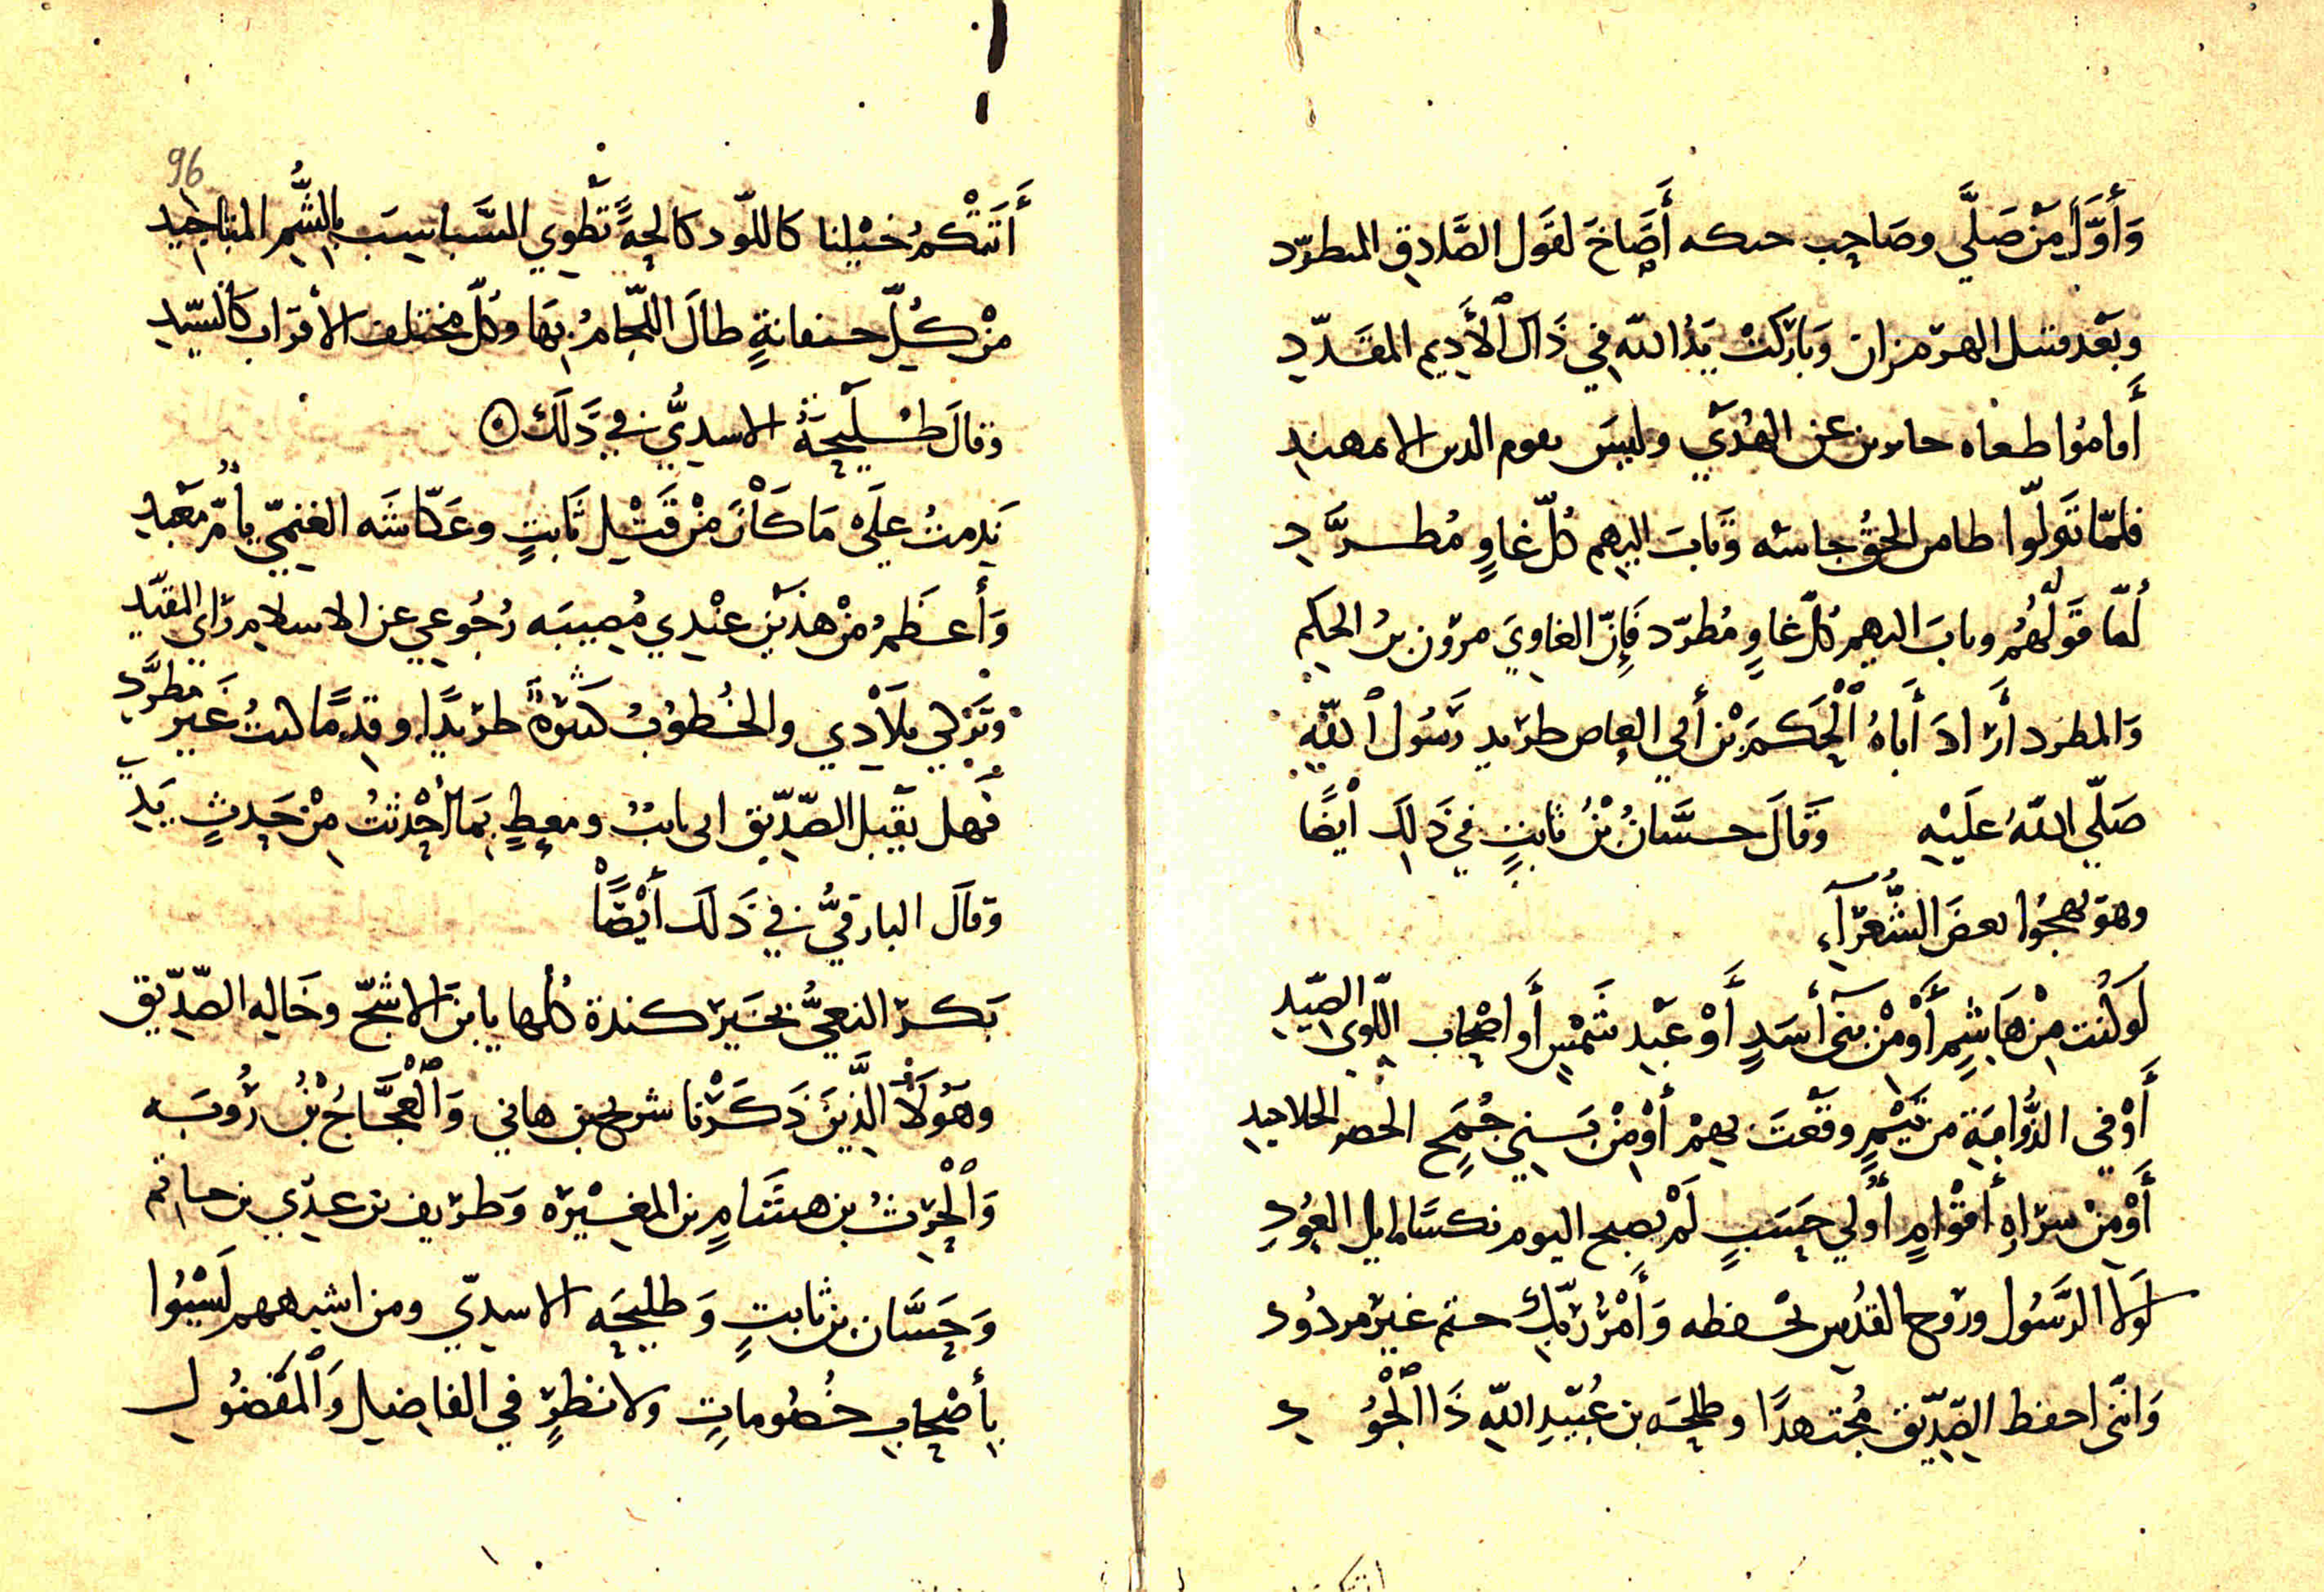 وَأَوَّلَ مَنْ صَلَّي وصَاحِب حىكه أَصَاخَ لقَول الصَّادِق المطرّد
وبَعْد قتىل الهرمزان وَبَارَكَتْ يَدُ اللّه فِي ذَاكَ ٱلأَدِيمِ المقَدّدِ
أَقامُوا طغاه حاىرىن عن الهُدَي وليسَ ىقوم الدىن الا ىمهتدِ
فلمّا تَولّوا طامن الحقُّ جاشه وَثابَ اليهِم كُلّ غاوٍ مُطرَّدِ
لمّا قَولُهُم وثابَ اليهم كُلّ غاوٍ مُطرّد فَإِنّ الغاويَ مرون بنُ الحكمِ
وَالمطرد أرَادَ أَبَاهُ ٱلْحَكَمَ بْن أَبي العاصِ طريد رَسُول ٱللّهِ
صَلّي اللّهُ عَلَيْهِ وَقَالَ حسَّانُ بْنُ ثابتٍ فِي ذَلِكَ أيْضًا
وهو يهجُوا بعضَ الشُّعَرآءِ
لَو كُنت مِنْ هَاشِمٍ أَوْ مِنْ بنى أسَدٍ أَوْ عَبْدِ شَمْسٍ أَو أصْحابِ اللّوي الصِّيدِ
أَوْ فِي الذُّوابَةِ من تَيْمٍ وقَعْتَ بهِمْ أوْ مِنْ بَنِي جُمَحِ الخضر الجلاعيد
أَوْ مِنْ سرَاهِ أَقْوَامٍ أُولي حَسَبٍ لَمْ يصبح اليوم نكسًا مايل العُودِ
لَولا الرَّسُول وروح القدُسِ يحْفظه وَأَمْرُ رَبِّكِ حتم غير مردُود
وَانّنى احفظ الصِّدّيق مُجتهدًا وطلحَه بن عُبَيْدِ اللّهِ ذَا ٱلْجُودِ
96
أَتَتْكُمُ خيْلنا كاللّود كالحِةً تطْوِي السَّباسِبَ بالشُّمِ المناجِيد
مِنْ كُلِّ حنفانةٍ طالَ اللّجامُ بِهَا وكُلّ مختلف الأقرَاب كالسِّيدِ
وقالَ طُلَيْحَةُ الاسدِيُّ فِي ذَلَكَ
نَدِمتُ عَلَي مَا كَانَ مِنْ قَتْلِ ثَابتٍ وعَكّاشَه الغنمِيّ يا أُمّ مَعْبَدِ
وَأَعظَمُ مِنْ هذَيْنِ عنْدِي مُصِيبَه رُجُوعِي عن الاسلام رَاي المقيّد
وتَرْكِي بلَادِي والخُطوُبُ كثيرةٌ طرِيدًا وقِدمًا كنتُ غَيْرَ مطرَّدِ
فَهل يقْبَل الصِّدّيق انى تائبٌ ومعطٍ بِمَا أحْدَثْتُ مِنْ حَدثٍ يَدِي
وَقَالَ البارقيُّ فِي ذَلَكَ أَيْضًا
بَكرَ النعيُّ بخَيْر كندة كُلها يا بنَ الاشجّ وخَالِه الصِّدّيق
وهَؤُلَاْ الَّذِينَ ذَكَرْنا شريح بن هاني وَٱلْعَجَّاجُ بْنُ رُوبَه
وَٱلْحَرِثُ بن هشَامٍ بن المغِيْرَه وَطرَيف بن عدِّي بن حاتمِ
وَحَسَّان بن ثابتٍ وَطليحَه الاسدِيّ ومن اشبههم لَيْسُوا
بِأَصْحَابِ خُصُوماتٍ ولا نظرٍ في الفاضِلِ وَٱلْمَفضُولِ